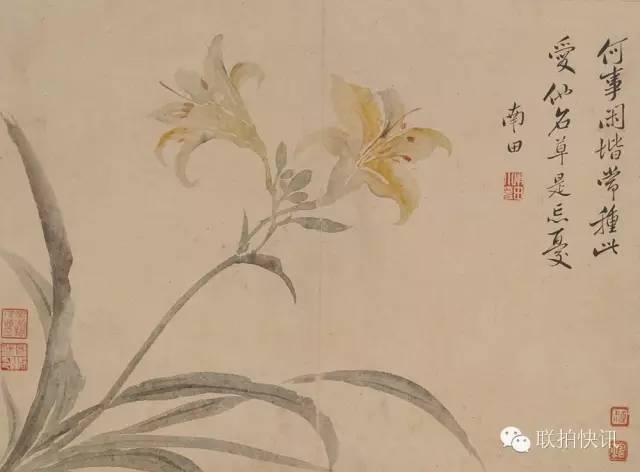 何事闲堦常種此
愛他名草是忘憂
南田
联拍快讯